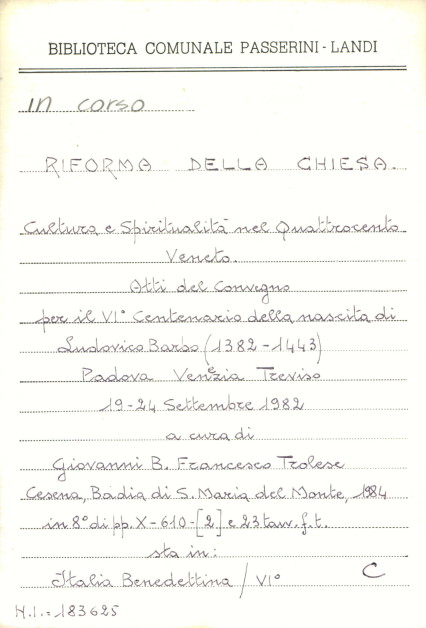 BIBLIOTECA COMUNALE PASSERINI - LANDI
in corso
RIFORMA DELLA CHIESA.
Cultura e Spiritualità nel Quattrocento
Veneto.
Atti del Convegno
per il VI° Centenario della nascita di
Ludovico Barbo (1382-1443)
Padova Venezia Treviso
19-24 Settembre 1982
a cura di
Giovanni B. Francesco Trolese
Cesena, Badia di S. Maria del Monte, 1984
in 8° di pp. X-610-[2] e 23 tav. f.t.
sta in:
Italia Benedettina / VI° C
N.I.= 183625